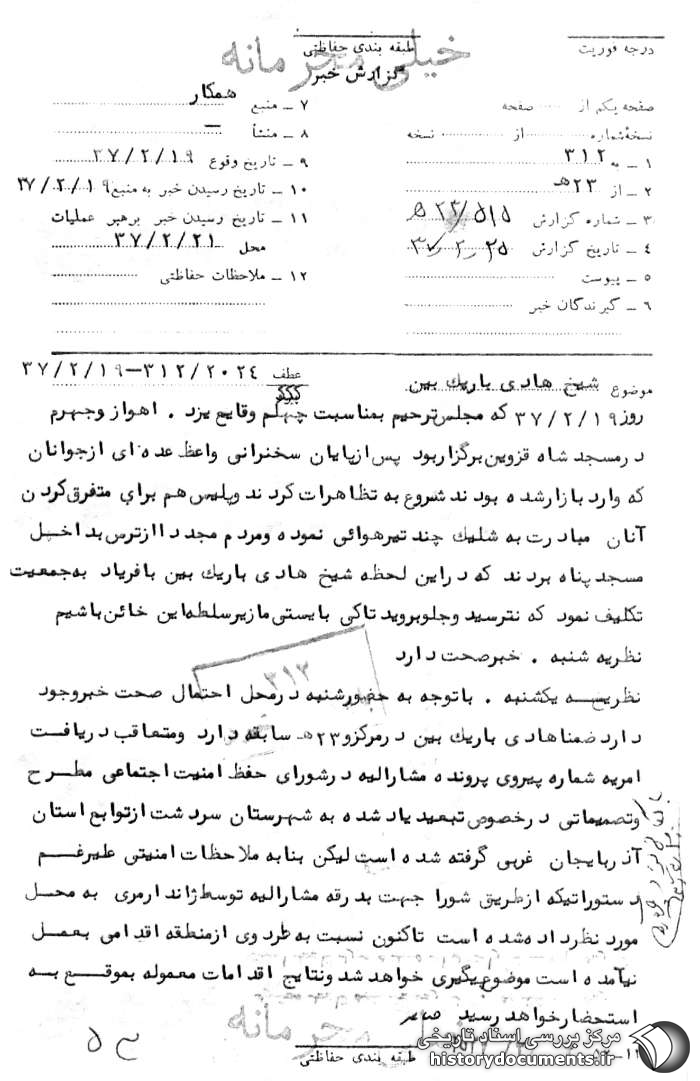 درجه فوریت
طبقه بندی حفاظتی
خیلی محرمانه
گزارش خبر
صفحه یکم از صفحه
نسخه شماره از نسخه
۱ ـ به ۳۱۲
۲ ـ از ۲۳هـ
۳ ـ شماره گزارش ۵۱۵/۲۳هـ
۴ ـ تاریخ گزارش ۲۵-۲-۳۷
۵ ـ پیوست
۶ ـ گیرندگان خبر
۷ ـ منبع همکار
۸ ـ منشأ ـ
۹ ـ تاریخ وقوع ۳۷/۲/۱۹
۱۰ ـ تاریخ رسیدن خبر به منبع ۳۷/۲/۱۹
۱۱ ـ تاریخ رسیدن خبر برهبر عملیات
محل ۳۷/۲/۲۱
۱۲ ـ ملاحظات حفاظتی
موضوع شیخ هادی باریک بین
عطف ۳۱۲/۲۰۲٤–۳۷/۲/۱۹
روز ۳۷/۲/۱۹ که مجلس ترحیم بمناسبت چهلم وقایع یزد . اهواز وجهرم
درمسجد شاه قزوین برگزاربود پس ازپایان سخنرانی واعظ عده ای ازجوانان
که وارد بازارشده بودند شروع به تظاهرات کردند وپلیس هم برای متفرق کردن
آنان مبادرت به شلیک چند تیرهوائی نموده ومردم مجددا ازترس بداخل
مسجد پناه بردند که دراین لحظه شیخ هادی باریک بین بافریاد به جمعیت
تکلیف نمود که نترسید وجلو بروید تاکی بایستی ما زیر سلطه این خائن باشیم
نظریه شنبه . خبرصحت دارد
۳۱۳
نظریه یکشنبه . باتوجه به حضورشنبه درمحل احتمال صحت خبروجود
دارد ضمنا هادی باریک بین درمرکزو ۲۳هـ سابقه دارد ومتعاقب دریافت
امریه شماره پیروی پرونده مشارالیه درشورای حفظ امنیت اجتماعی مطرح
وتصمیماتی درخصوص تبعید یاد شده به شهرستان سردشت ازتوابع استان
آذربایجان غربی گرفته شده است لیکن بنا به ملاحظات امنیتی علیرغم
دستوراتیکه ازطریق شورا جهت بدرقه مشارالیه توسط ژاندارمری به محل
مورد نظرداده شده است تاکنون نسبت به طرد وی ازمنطقه اقدامی بعمل
نیامده است موضوع پیگیری خواهد شد ونتایج اقدامات معموله بموقع به
استحضارخواهد رسید
خیلی محرمانه
طبقه بندی حفاظتی
مرکز بررسی اسناد تاریخی
historydocuments.ir